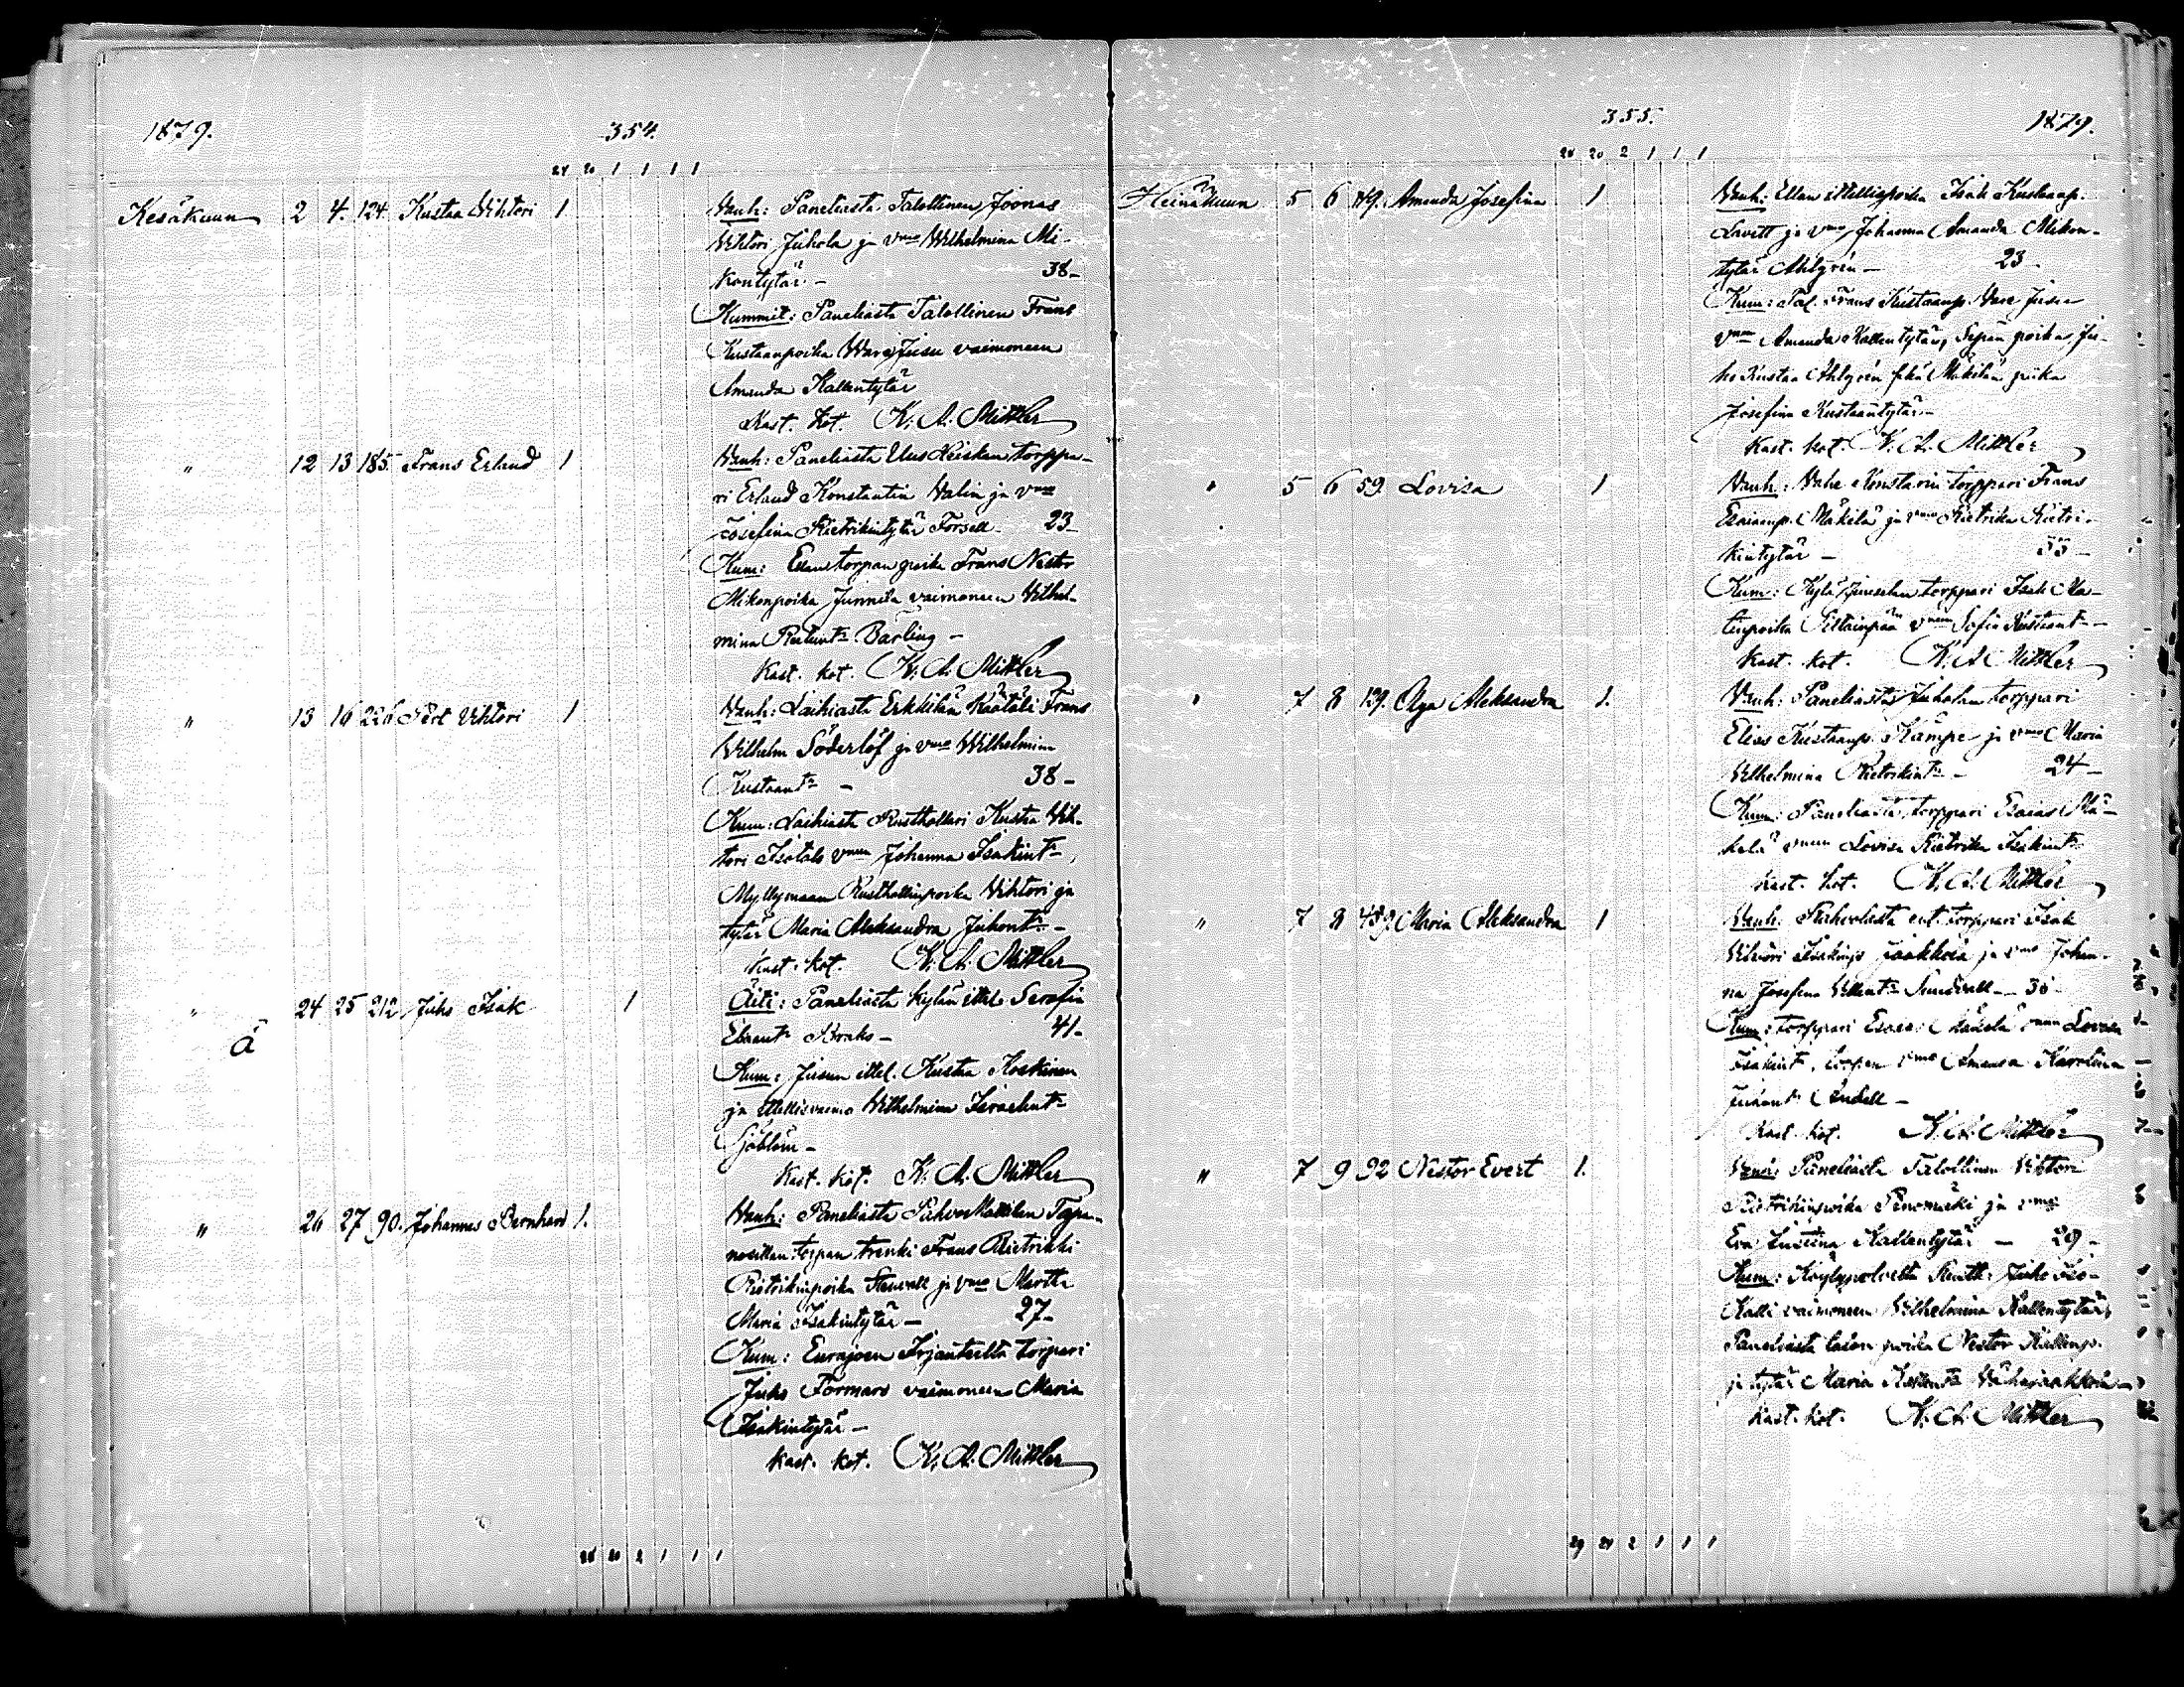 1879.
354.
24 20 1 1 1 1
Kesäkuun 2 4. 124. Kustaa Vihtori 1
Vanh: Paneliasta Talollinen Joonas
Vihtori Juhola ja vmo Wilhelmina Mi-
kontytär - 38-
Kummit: Paneliasta Talollinen Frans
Kustaanpoika Vare Jusu vaimoneen
Amanda Kallentytär
Kast. kot. K. A. Mittler
" 12 13 185. Frans Erland 1
Vanh: Paneliasta Uus torppa-
ri Erland Konstantin Valin ja vmo
Josefina Kietrikintytär Forsell 23
Kum: torpan poika Frans Nestor
Mikonpoika Junnila vaimoneen Vilhel-
mina Bärling -
Kast. kot. K. A. Mittler
" 13 16 226 Vihtori 1
Vanh: Laihiasta Erkkilän Räätäli Frans
Wilhelm Söderlöf ja vmo Wilhelmina
Kustaant: - 38-
Kum: Laihiasta Rusthollari Kustaa Vih-
tori Isotalo vmon Johanna Isakint:
Myllymaan Rusthollinpoika Vihtori ja
tytär Maria Aleksandra Juhont: -
Kast. kot. K. A. Mittler
" 24 25 212 Juho Isak 1
Ä
Äiti: Paneliasta kylän ittel. Serafia
Kraks - 41-
Kum: Jusun ittel. Kustaa Koskinen
ja ittellisvaimo Vilhelmina Israelint:
Sjöblom -
Kast. kot. K. A. Mittler
" 26 27 90. Johannes Bernhard 1.
Vanh: Paneliasta Tapa-
torpan trenki Frans Rietrikki
Rietrikinpoika Stenvall ja vmo Martta
Maria Isakintytär - 27-
Kum: Eurajoen Irjanteelta torpari
Juho Forman vaimoneen Maria
Isakintytär -
Kast. kot. K. A. Mittler
28 20 2 1 1 1
355.
1879.
28 20 2 1 1 1
Heinäkuun 5 6 Amanda Josefina 1
Vanh: ittellispoika Isak Kustaanp.
ja vmo Johanna Amanda Mikon-
tytär Ahlgrén - 23-
Kum: Tal. Frans Kustaanp. Vare Jusu
vmon Amanda Kallentytär, Sepän poika Ju-
ho Kustaa Ahlgrén sekä Mäkilän piika
Josefina Kustaantytär -
Kast. kot. K. A. Mittler
" 5 6 59. Lovisa 1
Vanh: torppari Frans
Esaianp. Mäkilä ja vmo
kintytär - 35-
Kum: Kylä torppari Isak Ma-
tinpoika vmon Sofia Kustaant: -
Kast. kot. K. A. Mittler
" 7 8 139. Olga Aleksandra 1.
Vanh: Paneliasta Juholan torppari
Elias Kustaanp. Kämpe ja vmo Maria
Vilhelmina Rietrikint: - 24-
Kum: Paneliasta torppari Esaias Mä-
kelä vmon Lovisa Rietrika Isakint:
Kast. kot. K. A. Mittler
" 7 8 489. Maria Aleksandra 1
Vanh: ent. torppari Isak
Vihtori Jaakkola ja vmo Johan-
na Josefina Sundvall - 30-
Kum: torppari Esaias Mäkelä vmon Lovisa
Isakint, vmo Amanda Karolina
Juhont: -
Kast. kot. K. A. Mittler
" 7 9 92 Nestor Evert 1.
Vanh: Paneliasta Talollinen Vihtori
Rietrikinpoika Penomäki ja vmo
Eva Kallentytär - 29-
Kum: Köyliypolvelta Rusth. Juho Iso-
Kalli vaimoneen Vilhelmina Kallentytär,
Paneliasta talon poika Nestor Kallenp.
ja tytär Maria Vähäjaakkola -
Kast. kot. K. A. Mittler
29 24 2 1 1 1